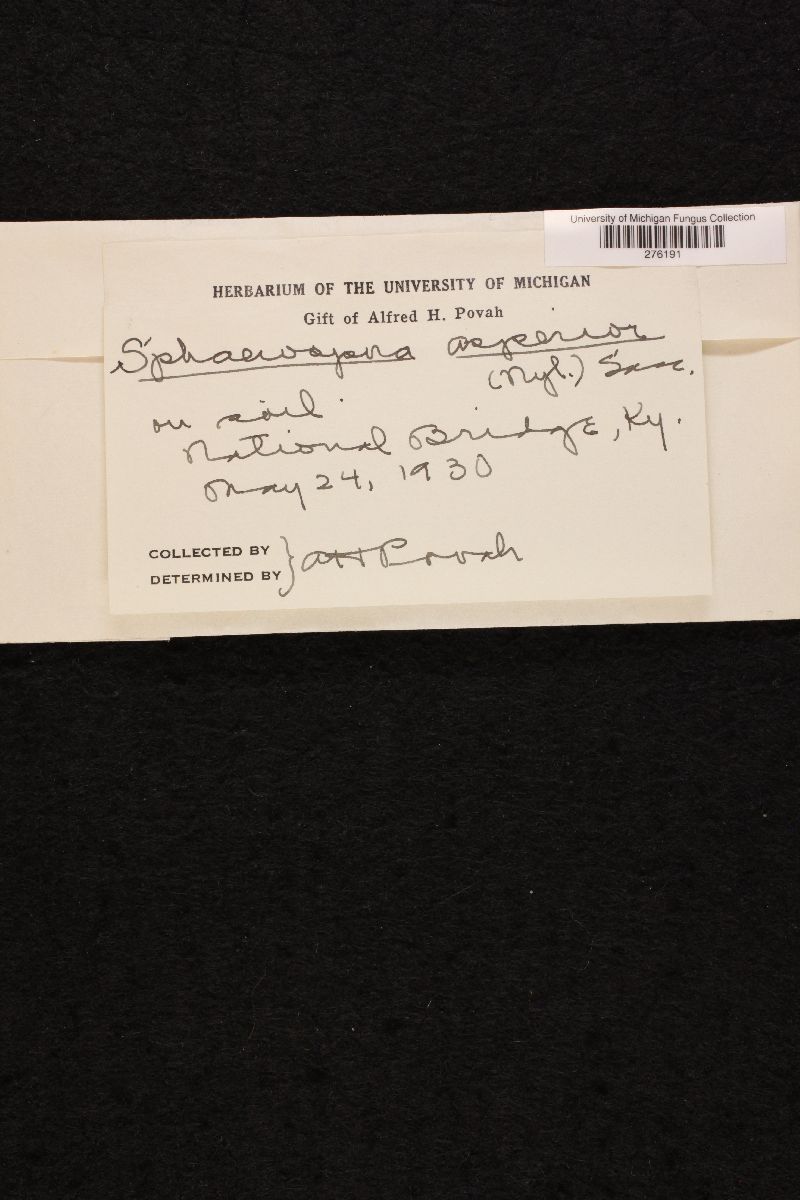 University of Michigan Fungus Collection
276191
HERBARIUM OF THE UNIVERSITY OF MICHIGAN
Gift of Alfred H. Povah
Sphaerospora asperior
(Nyl.) Sacc.
on soil.
National Bridge, Ky.
May 24, 1930
COLLECTED BY
DETERMINED BY } AH Povah